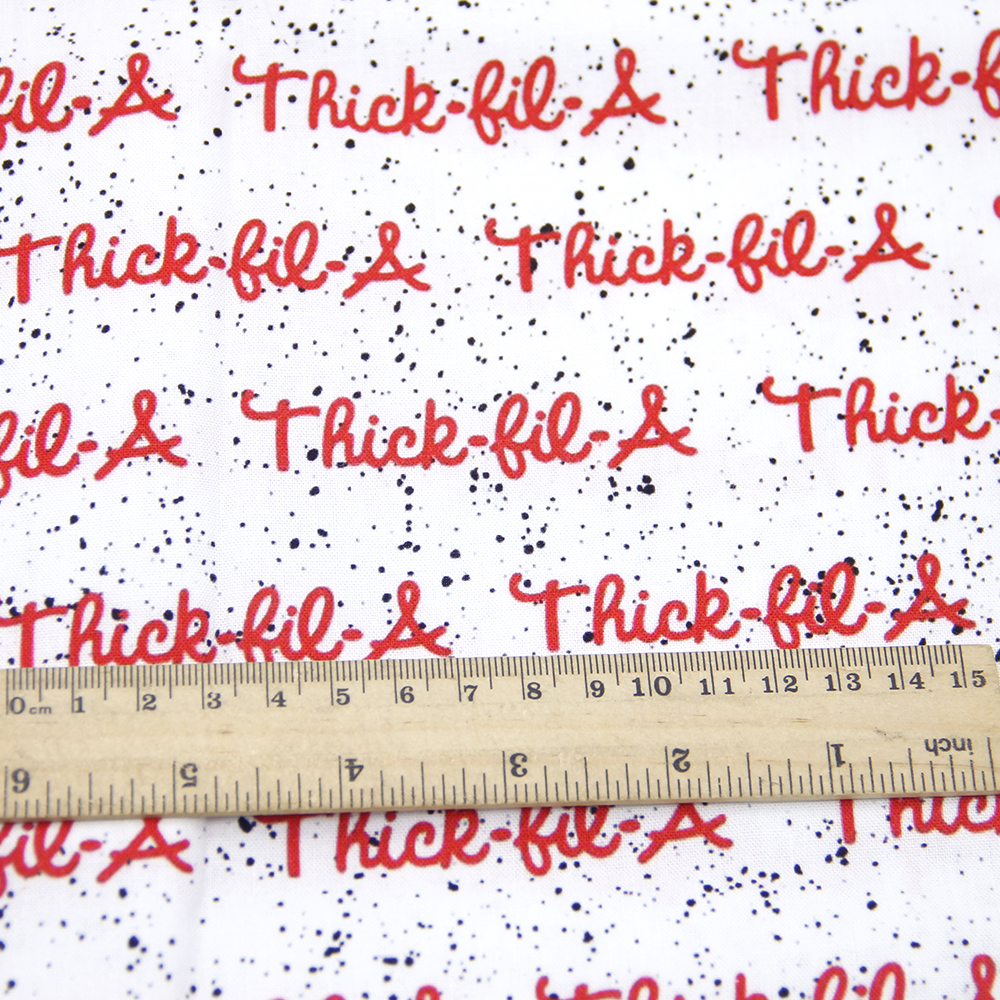 fil-A Thick-fil-A Thick-f
Thick-fil-A Thick-fil-A
fil-A Thick-fil-A Thick-
Thick-fil-A Thick-fil-A
0cm 1 2 3 4 5 6 7 8 9 10 11 12 13 14 15
6 5 4 3 2 1 inch
fil-A Thick-fil-A Thic